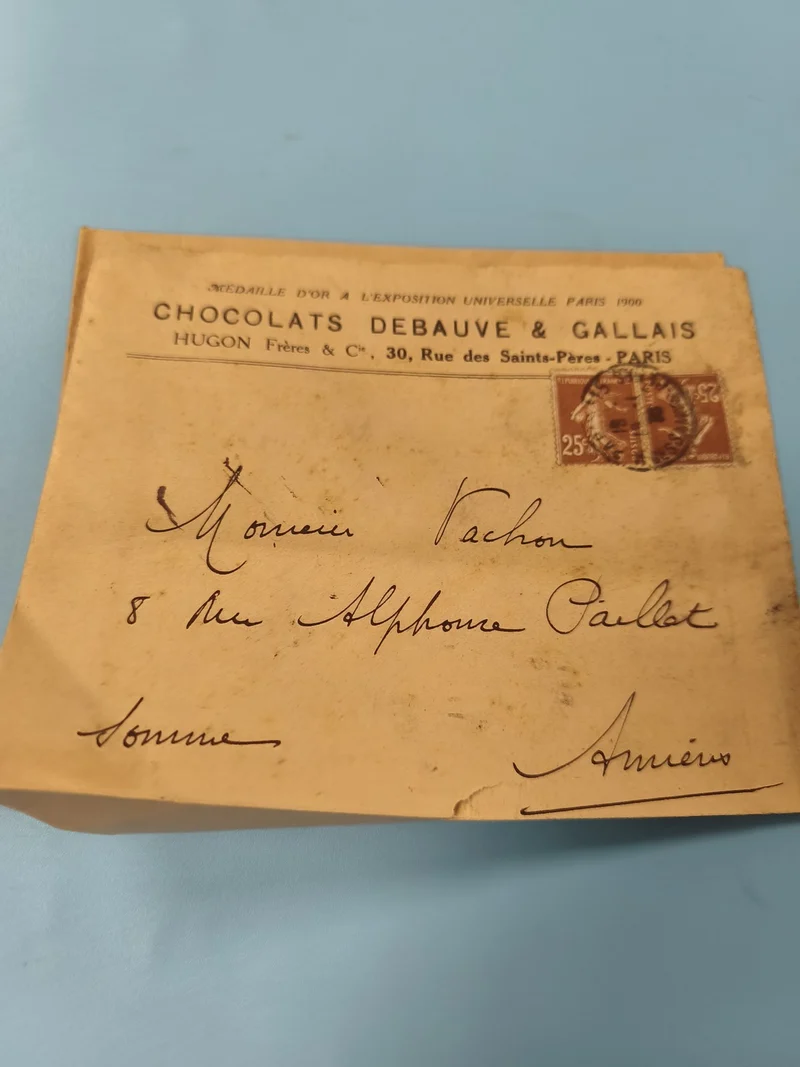 MÉDAILLE D'OR A L'EXPOSITION UNIVERSELLE PARIS 1900
CHOCOLATS DEBAUVE & GALLAIS
HUGON Frères & Cie, 30, Rue des Saints-Pères - PARIS
25c 25c
Monsieur Vachon
8 Rue Alphonse Paillat
Somme Amiens